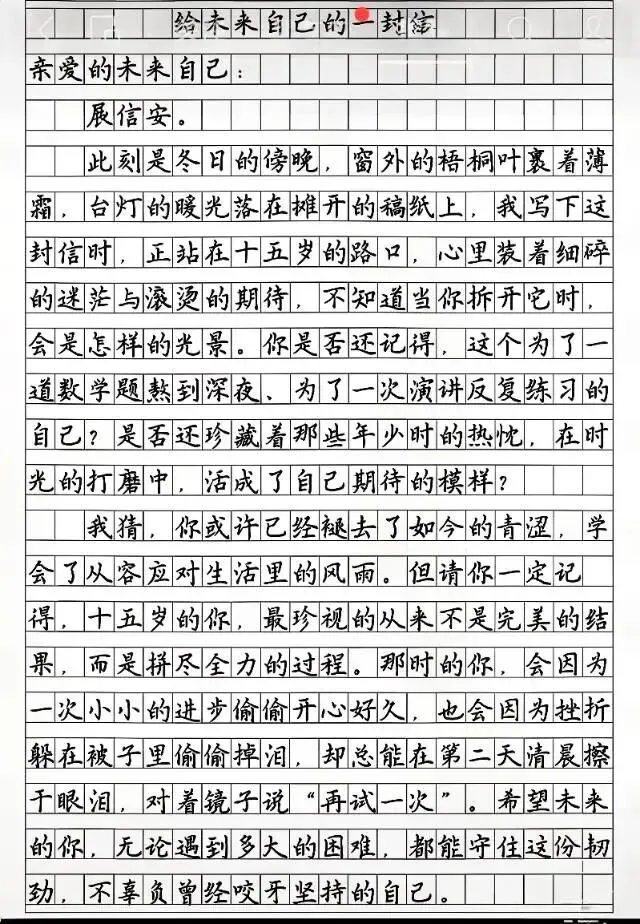 给未来自己的一封信
亲爱的未来自己：
展信安。
此刻是冬日的傍晚，窗外的梧桐叶裹着薄
霜，台灯的暖光落在摊开的稿纸上，我写下这
封信时，正站在十五岁的路口，心里装着细碎
的迷茫与滚烫的期待，不知道当你拆开它时，
会是怎样的光景。你是否还记得，这个为了一
道数学题熬到深夜、为了一次演讲反复练习的
自己？是否还珍藏着那些年少时的热忱，在时
光的打磨中，活成了自己期待的模样？
我猜，你或许已经褪去了如今的青涩，学
会了从容应对生活里的风雨。但请你一定记
得，十五岁的你，最珍视的从来不是完美的结
果，而是拼尽全力的过程。那时的你，会因为
一次小小的进步偷偷开心好久，也会因为挫折
躲在被子里偷偷掉泪，却总能在第二天清晨擦
干眼泪，对着镜子说“再试一次”。希望未来
的你，无论遇到多大的困难，都能守住这份韧
劲，不辜负曾经咬牙坚持的自己。